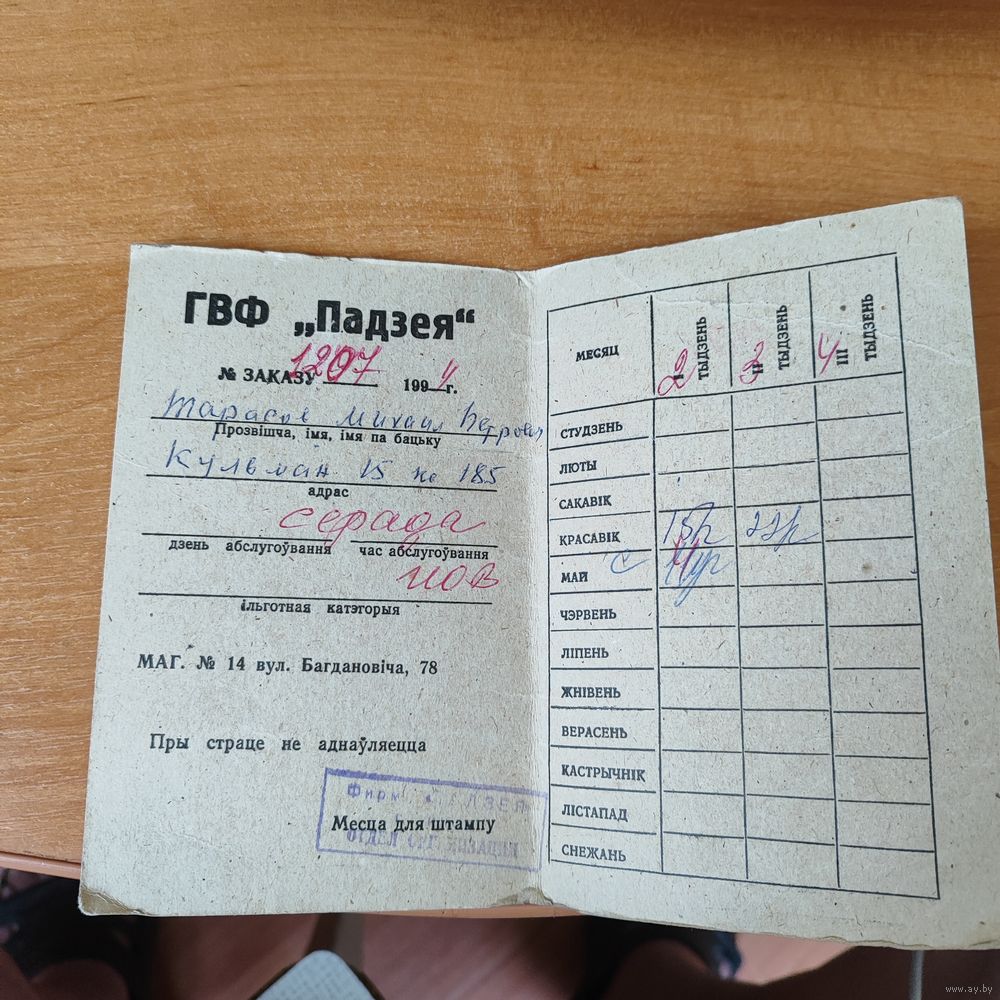 ГВФ „Падзея“
№ ЗАКАЗУ 1207 1994 г.
Тарасов Михаил Петрович
Прозвішча, імя, імя па бацьку
Кульман 15 кв 185
адрас
серада
дзень абслугоўвання час абслугоўвання
ИОВ
ільготная катэгорыя
МАГ. № 14 вул. Багдановіча, 78
Пры страце не аднаўляецца
Фирм
Месца для штампу
ОТДЕЛ
МЕСЯЦ 2 ТЫДЗЕНЬ 3 II ТЫДЗЕНЬ 4 III ТЫДЗЕНЬ
СТУДЗЕНЬ
ЛЮТЫ
САКАВІК
КРАСАВІК
МАЙ с
ЧЭРВЕНЬ
ЛІПЕНЬ
ЖНІВЕНЬ
ВЕРАСЕНЬ
КАСТРЫЧНІК
ЛІСТАПАД
СНЕЖАНЬ
www.ay.by